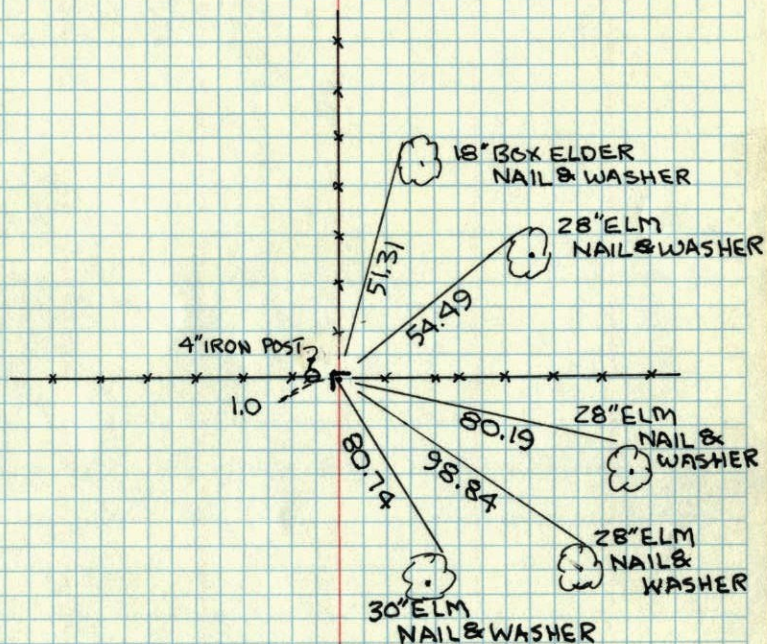 18" BOX ELDER
NAIL & WASHER
28" ELM
NAIL & WASHER
51.31
54.49
4" IRON POST
1.0
80.19
28" ELM
NAIL &
WASHER
80.74
98.84
28" ELM
NAIL &
WASHER
30" ELM
NAIL & WASHER